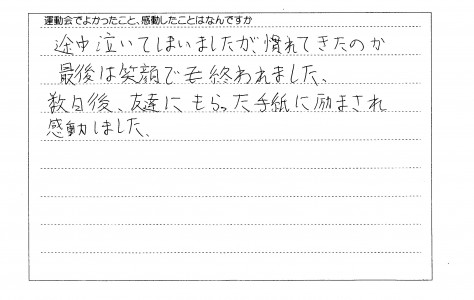 運動会でよかったこと、感動したことはなんですか
途中泣いてしまいましたが、慣れてきたのか
最後は笑顔で終われました、
数日後、友達にもらった手紙に励まされ
感動しました、